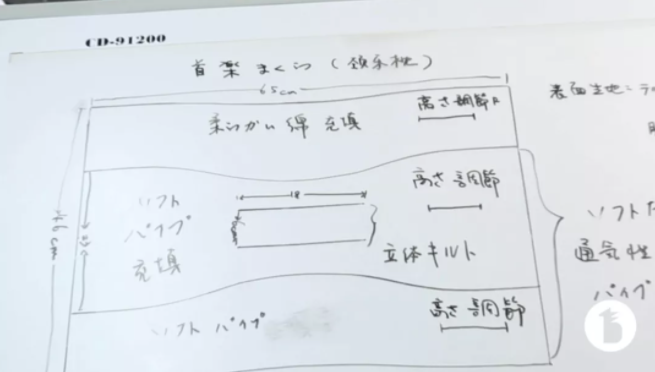 CD-91200
首楽まくら（頚承枕）
65cm
高さ調節A
表面生地：
柔らかい綿充填
高さ調節
18
ソフト
パイプ
充填
46cm
立体キルト
ソフト
通気性
パイプ
高さ調節
ソフトパイプ